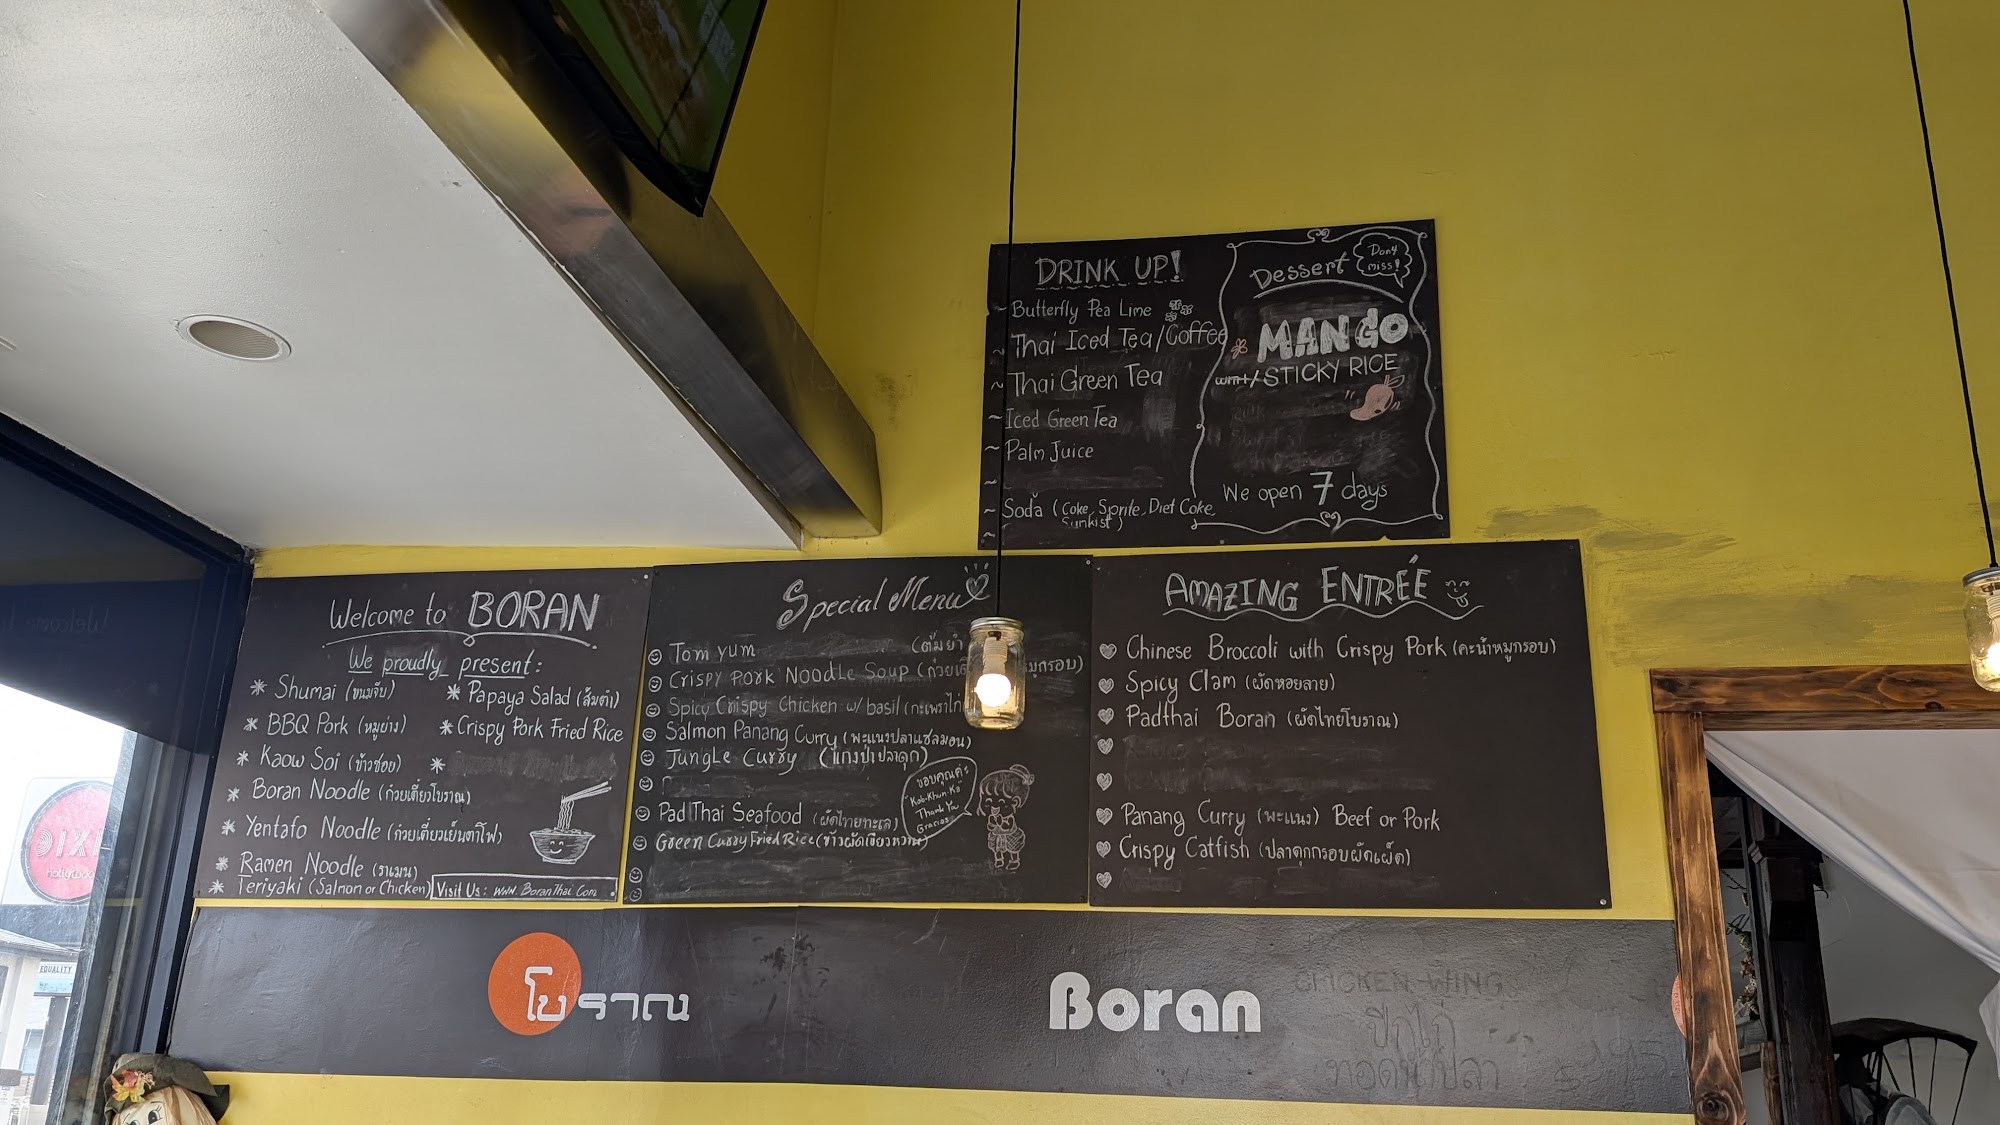 DRINK UP!
~ Butterfly Pea Lime
~ Thai Iced Tea/Coffee
~ Thai Green Tea
~ Iced Green Tea
~ Palm Juice
~
~ Soda (Coke, Sprite, Diet Coke,
Sunkist)
~
Dessert
Don't
miss!
MANGO
STICKY RICE
We open 7 days
Welcome to BORAN
We proudly present:
* Shumai (ขนมจีบ)
* BBQ Pork (หมูย่าง)
* Kaow Soi (ข้าวซอย)
* Boran Noodle (ก๋วยเตี๋ยวโบราณ)
* Yentafo Noodle (ก๋วยเตี๋ยวเย็นตาโฟ)
* Ramen Noodle (ราเมน)
* Teriyaki (Salmon or Chicken)
* Papaya Salad (ส้มตำ)
* Crispy Pork Fried Rice
*
Visit Us: www.BoranThai.Com
Special Menu
Tom yum (ต้มยำ
Crispy Pork Noodle Soup (ก๋วยเตี๋ หมูกรอบ)
Spicy Crispy Chicken w/ basil (กะเพราไก่
Salmon Panang Curry (พะแนงปลาแซลมอน)
Jungle Curry (แกงป่าปลาดุก)
Pad Thai Seafood (ผัดไทยทะเล)
Green Curry Fried Rice (ข้าวผัดเขียวหวาน)
ขอบคุณค่ะ
"Kob-Khun-Ka"
Thank You
Gracias
AMAZING ENTRÉE
Chinese Broccoli with Crispy Pork (คะน้าหมูกรอบ)
Spicy Clam (ผัดหอยลาย)
Padthai Boran (ผัดไทยโบราณ)
Panang Curry (พะแนง) Beef or Pork
Crispy Catfish (ปลาดุกกรอบผัดเผ็ด)
โบราณ
Boran
CHICKEN WING
ปีกไก่
ทอดน้ำปลา
EQUALITY